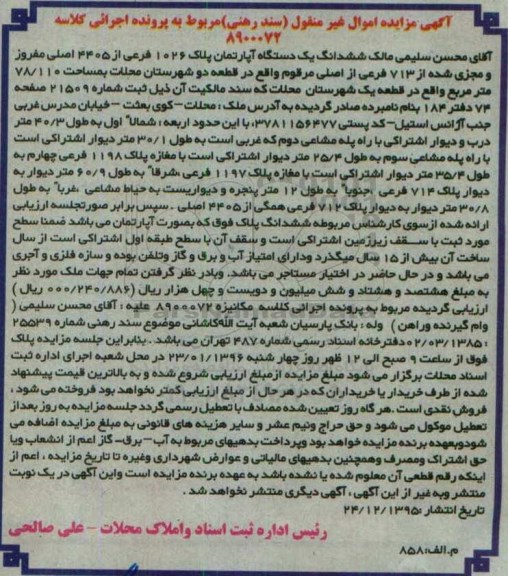 آگهی مزایده اموال غیر منقول (سند رهنی)مربوط به پرونده اجرائی کلاسه
۸۹۰۰۰۷۲
آقای محسن سلیمی مالک ششدانگ یک دستگاه آپارتمان پلاک ۱۰۲۶ فرعی از ۴۴۰۵ اصلی مفروز
و مجزی شده از ۷۱۳ فرعی از اصلی مرقوم واقع در قطعه دو شهرستان محلات بمساحت ۷۸/۱۱۰
متر مربع واقع در قطعه یک شهرستان محلات که سند مالکیت آن ذیل ثبت شماره ۲۱۵۰۹ صفحه
۷۴ دفتر ۱۸۴ بنام نامبرده صادر گردیده به آدرس ملک : محلات-کوی بعثت -خیابان مدرس غربی
جنب آژانس استیل-کد پستی ۳۷۸۱۱۵۶۴۷۷، با این حدود اربعه : شمالاً اول به طول ۴۰/۳ متر
درب و دیوار اشتراکی با راه پله مشاعی دوم که غربی است به طول ۳۰/۱ متر دیوار اشتراکی است
با راه پله مشاعی سوم به طول ۲۵/۴ متر دیوار اشتراکی است با مغازه پلاک ۱۱۹۸ فرعی چهارم به
طول ۳۵/۴ متر دیوار اشتراکی است با مغازه پلاک ۱۱۹۷ فرعی ،شرقاً به طول ۶۰/۹ متر دیوار به
دیوار پلاک ۷۱۴ فرعی ،جنوباً به طول ۱۲ متر پنجره و دیواریست به حیاط مشاعی ،غرباً به طول
۳۰/۸ متر دیوار به دیوار پلاک ۷۱۲ فرعی همگی از ۴۴۰۵ اصلی . سپس برابر صورتجلسه ارزیابی
ارائه شده ازسوی کارشناس مربوطه ششدانگ پلاک فوق که بصورت آپارتمان می باشد ضمنا سطح
مورد ثبت با سقف زیرزمین اشتراکی است و سقف آن با سطح طبقه اول اشتراکی است از سال
ساخت آن بیش از ۱۵ سال میگذرد ودارای امتیاز آب و برق و گاز وتلفن بوده و سازه فلزی و آجری
می باشد و در حال حاضر در اختیار مستاجر می باشد. وبادر نظر گرفتن تمام جهات ملک مورد نظر
به مبلغ هشتصد و هشتاد و شش میلیون و دویست و چهل هزار ریال (۰۰۰/۲۴۰/۸۸۶ ریال )
ارزیابی گردیده مربوط به پرونده اجرائی کلاسه مکانیزه ۸۹۰۰۰۷۲ علیه : آقای محسن سلیمی (
وام گیرنده وراهن ) وله : بانک پارسیان شعبه آیت الله کاشانی موضوع سند رهنی شماره ۲۵۵۳۹
:۰۲/۰۳/۱۳۸۵ دفترخانه اسناد رسمی شماره ۴۸۷ تهران می باشد . بنابراین جلسه مزایده پلاک
فوق از ساعت ۹ صبح الی ۱۲ ظهر روز چهار شنبه ۲۳/۰۱/۱۳۹۶ در محل شعبه اجرای اداره ثبت
اسناد محلات برگزار می شود مبلغ مزایده ازمبلغ ارزیابی شروع شده و به بالاترین قیمت پیشنهاد
شده از طرف خریدار یا خریداران که در هر حال از مبلغ ارزیابی کمتر نخواهد بود فروخته می شود ،
فروش نقدی است . هر گاه روز تعیین شده مصادف با تعطیل رسمی گردد جلسه مزایده به روز بعد از
تعطیل موکول می شود و حق حراج ونیم عشر و سایر هزینه های قانونی به مبلغ مزایده اضافه می
شودوبعهده برنده مزایده خواهد بود وپرداخت بدهیهای مربوط به آب – برق- گاز اعم از انشعاب ویا
حق اشتراک ومصرف وهمچنین بدهیهای مالیاتی و عوارض شهرداری وغیره تا تاریخ مزایده ، اعم از
اینکه رقم قطعی آن معلوم شده یا نشده باشد به عهده برنده مزایده است واین آگهی در یک نوبت
منتشر وبه غیر از این آگهی ، آگهی دیگری منتشر نخواهد شد .
تاریخ انتشار :۲۴/۱۲/۱۳۹۵
رئیس اداره ثبت اسناد واملاک محلات – علی صالحی
م.الف:۸۵۸